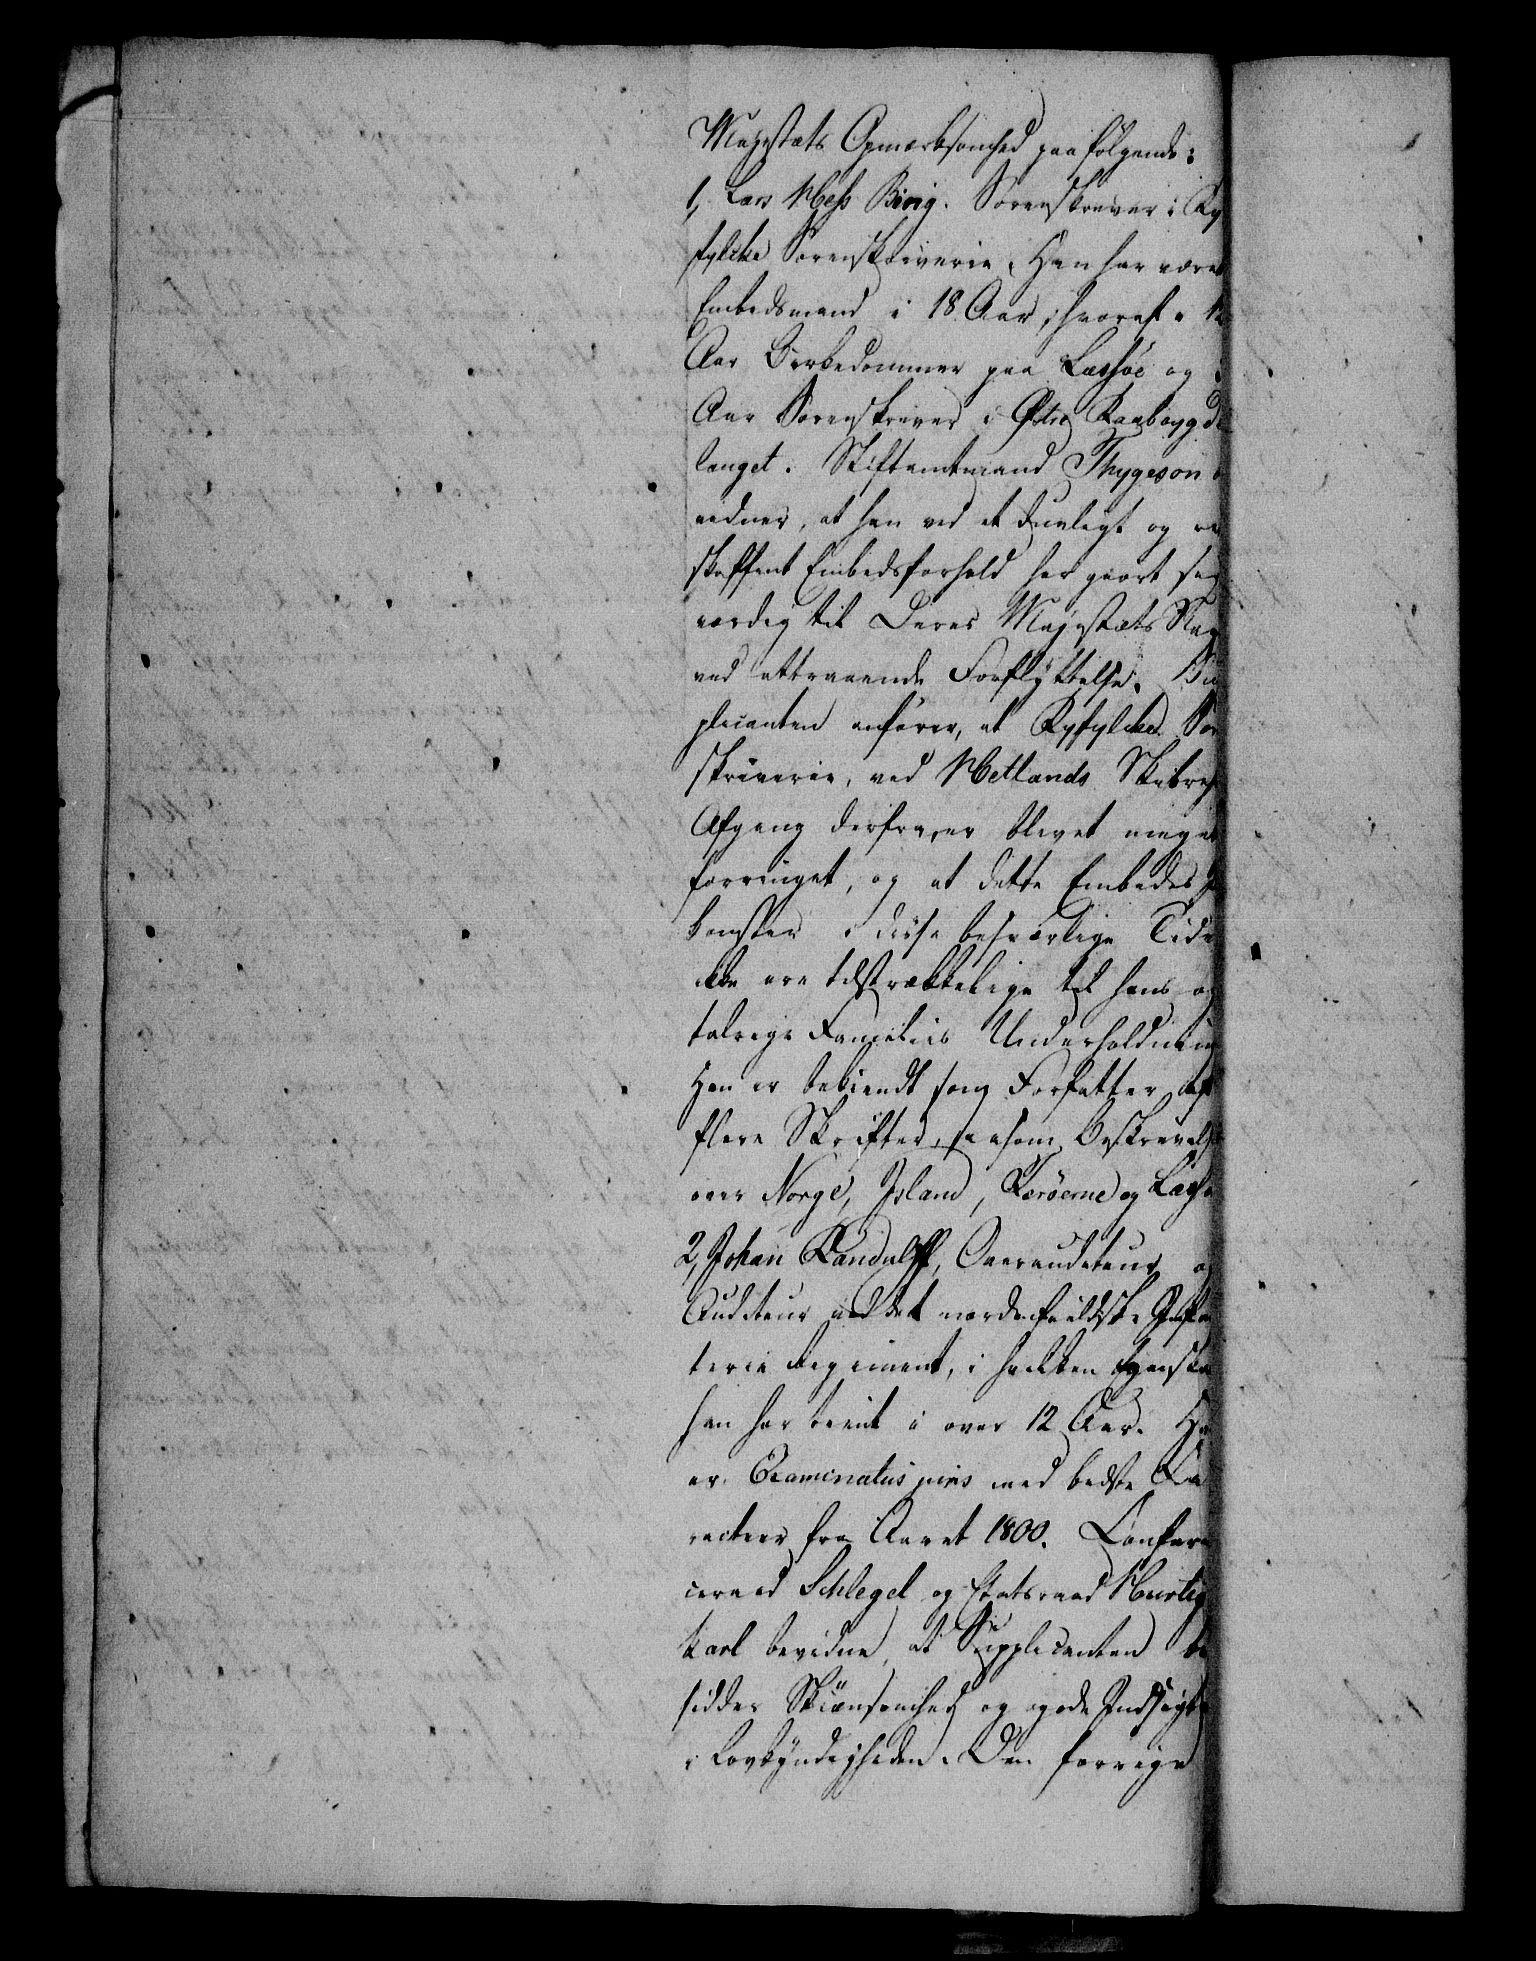 Majestæts Opmærksomhed paa følgende:
1, Lars Hess Bing. Sorenskriver i Ry
fylcke Sorenskriverie. Han har været
Embedsmand i 18 Aar, hvoraf
Aar Birkedommer paa Lessøe og
Aar Sorenskriver i Østre Raabøygde
lauget. Stiftamtmand Thygeson
vidner, at han ved et dueligt og ret
skaffent Embedsforhold har giort sig
værdig til Deres Majestæts Naa
ved attraaende Forflyttelse. Sup
plicanten anfører, at Ryfylcke Sor
skriverie, ved Hetlands Skibred
Afgang derfra, er blevet meget
forringet, og at dette Embedes
komster i disse besværlige Tider
ikke ere tilstrækkelige til hans og
talrige Families Underholdning
Han er bekiendt som Forfatter af
flere Skrifter, saasom Beskrivelse
over Norge, Island, Færøerne og Læsø
2, Johan Randulff, Overauditeur og
Auditeur ved det nordenfieldske Infan
terie Regiment, i hvilken Egenskab
han har tient i over 12 Aar. Han
er Examinatus juris med bedste Ca
racteer fra Aaret 1800. Conferen
ceraad Schlegel og Etatsraad Hurtig
karl bevidne, at Supplicanten be
sidder Skiønsomhed og gode Indsigter
i Lovkyndigheden. Den forrige